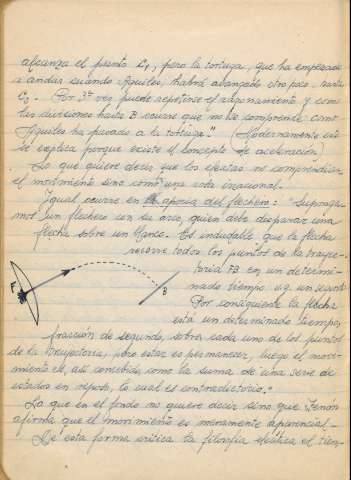 alcanza el punto C₁, pero la tortuga, que ha empezado
a andar cuando Aquiles, habrá avanzado otro poco, hasta
C₂. Por 3ª vez puede repetirse el razonamiento y como
las divisiones hasta B ocurre que no se comprende como
Aquiles ha pasado a la tortuga." (Modernamente esto
se explica porque existe el concepto de aceleración)
Lo que quiere decir que los eleatas no comprendían
el movimiento sino como una nota irracional.-
Igual ocurre en la aporía del flechero: "Suponga-
mos un flechero con su arco, quien debe disparar una
flecha sobre un blanco. Es indudable que la flecha
recorre todos los puntos de la trayec-
toria FB en un determi-
nado tiempo v.g. un segundo
Por consiguiente la flecha
está un determinado tiempo,
fracción de segundo, sobre cada uno de los puntos
de la trayectoria, pero estar es permanecer, luego el movi-
miento es, así concebido como la suma de una serie de
estados en reposo, lo cual es contradictorio."
Lo que en el fondo no quiere decir sino que Zenón
afirma que el movimiento es meramente aparencial.-
De esta forma critica la filosofía eleática el tiem-
F
B